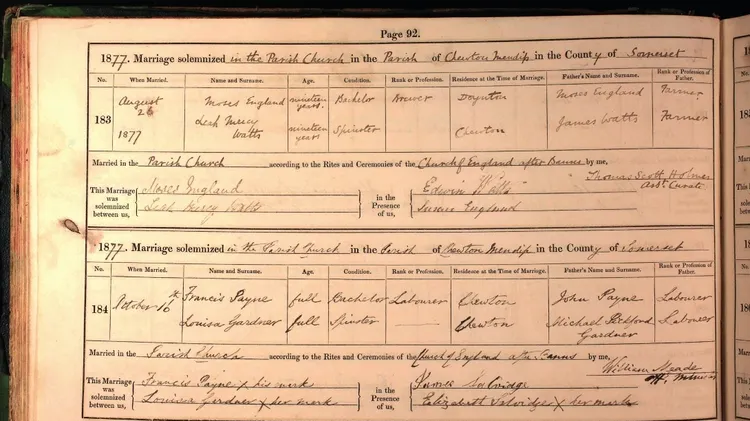 Page 92.
1877. Marriage solemnized in the Parish Church in the Parish of Chewton Mendip in the County of Somerset
No. When Married. Name and Surname. Age. Condition. Rank or Profession. Residence at the Time of Marriage. Father's Name and Surname. Rank or Profession of Father.
183 August 26 1877 Moses England nineteen years. Bachelor Brewer Doynton Moses England Farmer
Leah Mercy Watts nineteen years Spinster Chewton James Watts Farmer
Married in the Parish Church according to the Rites and Ceremonies of the Church of England after Banns by me,
Thomas Scott Holmes
Asst Curate
This Marriage was solemnized between us, Moses England
Leah Mercy Watts
in the Presence of us, Edwin Watts
England
1877. Marriage solemnized in the Parish Church in the Parish of Chewton Mendip in the County of Somerset
No. When Married. Name and Surname. Age. Condition. Rank or Profession. Residence at the Time of Marriage. Father's Name and Surname. Rank or Profession of Father.
184 October 16th Francis Payne full Bachelor Labourer Chewton John Payne Labourer
Louisa Gardner full Spinster Chewton Michael Gardner Labourer
Married in the Parish Church according to the Rites and Ceremonies of the Church of England after Banns by me,
William Meade
This Marriage was solemnized between us, Francis Payne x his mark
Louisa Gardner x her mark
in the Presence of us, James Selvidge
Elizabeth Selvidge x her mark